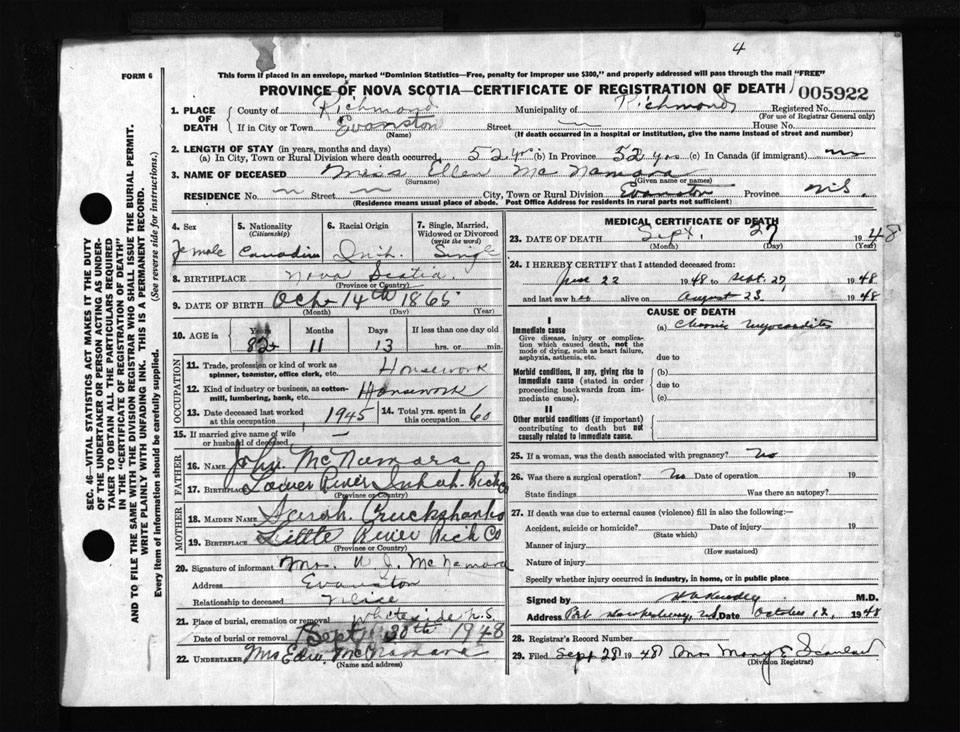 4
FORM 6
This form if placed in an envelope, marked "Dominion Statistics—Free, penalty for improper use $300," and properly addressed will pass through the mail "FREE"
PROVINCE OF NOVA SCOTIA—CERTIFICATE OF REGISTRATION OF DEATH 005922
1. PLACE OF DEATH County of Richmond Municipality of Richmond Registered No.
(For use of Registrar General only)
If in City or Town Evanston Street House No.
(Name) (If death occurred in a hospital or institution, give the name instead of street and number)
2. LENGTH OF STAY (in years, months and days)
(a) In City, Town or Rural Division where death occurred 52 yrs (b) In Province 52 yrs (c) In Canada (if immigrant)
3. NAME OF DECEASED Miss Ellen McNamara
(Surname) (Given name or names)
RESIDENCE No. Street City, Town or Rural Division Evanston Province N.S.
(Residence means usual place of abode. Post Office Address for residents in rural parts not sufficient)
4. Sex 5. Nationality (Citizenship) 6. Racial Origin 7. Single, Married, Widowed or Divorced (write the word)
Female Canadian Single
8. BIRTHPLACE Nova Scotia
(Province or Country)
9. DATE OF BIRTH Oct 14th 1865
(Month) (Day) (Year)
10. AGE in Years Months Days If less than one day old
82 11 13 hrs. or min.
OCCUPATION
11. Trade, profession or kind of work as spinner, teamster, office clerk, etc. Housework
12. Kind of industry or business, as cotton-mill, lumbering, bank, etc. Housework
13. Date deceased last worked at this occupation 1945 14. Total yrs. spent in this occupation 60
15. If married give name of wife or husband of deceased —
FATHER
16. NAME John McNamara
17. BIRTHPLACE River Rich Co
(Province or Country)
MOTHER
18. MAIDEN NAME Sarah Cruckshanks
19. BIRTHPLACE Little River Rich Co
(Province or Country)
20. Signature of informant Mrs. W J. McNamara
Address Evanston
Relationship to deceased
21. Place of burial, cremation or removal Whiteside N.S
Date of burial or removal Sept 30th 1948
22. UNDERTAKER Mrs Edw. McNamara
(Name and address)
MEDICAL CERTIFICATE OF DEATH
23. DATE OF DEATH Sept. 27 1948
(Month) (Day) (Year)
24. I HEREBY CERTIFY that I attended deceased from:
June 22 1948 to Sept. 27, 1948
and last saw her alive on August 23, 1948
CAUSE OF DEATH
I
Immediate cause (a) Chronic myocarditis
Give disease, injury or complication which caused death, not the mode of dying, such as heart failure, asphyxia, asthenia, etc.
due to
Morbid conditions, if any, giving rise to immediate cause (stated in order proceeding backwards from immediate cause). (b)
due to
(c)
II
Other morbid conditions (if important) contributing to death but not causally related to immediate cause.
25. If a woman, was the death associated with pregnancy? No
26. Was there a surgical operation? No Date of operation 19
State findings Was there an autopsy?
27. If death was due to external causes (violence) fill in also the following:
Accident, suicide or homicide? Date of injury 19
(State which)
Manner of injury
(How sustained)
Nature of injury
Specify whether injury occurred in industry, in home, or in public place
Signed by M.D.
Address Port Hawkesbury, N.S. Date October 12, 1948
28. Registrar's Record Number
29. Filed Sept 28 1948 Mrs Mary E
(Division Registrar)
SEC. 46—VITAL STATISTICS ACT MAKES IT THE DUTY
OF THE UNDERTAKER OR PERSON ACTING AS UNDER-
TAKER TO OBTAIN ALL THE PARTICULARS REQUIRED
IN THE "CERTIFICATE OF REGISTRATION OF DEATH"
AND TO FILE THE SAME WITH THE DIVISION REGISTRAR WHO SHALL ISSUE THE BURIAL PERMIT.
WRITE PLAINLY WITH UNFADING INK. THIS IS A PERMANENT RECORD.
Every item of information should be carefully supplied. (See reverse side for instructions.)